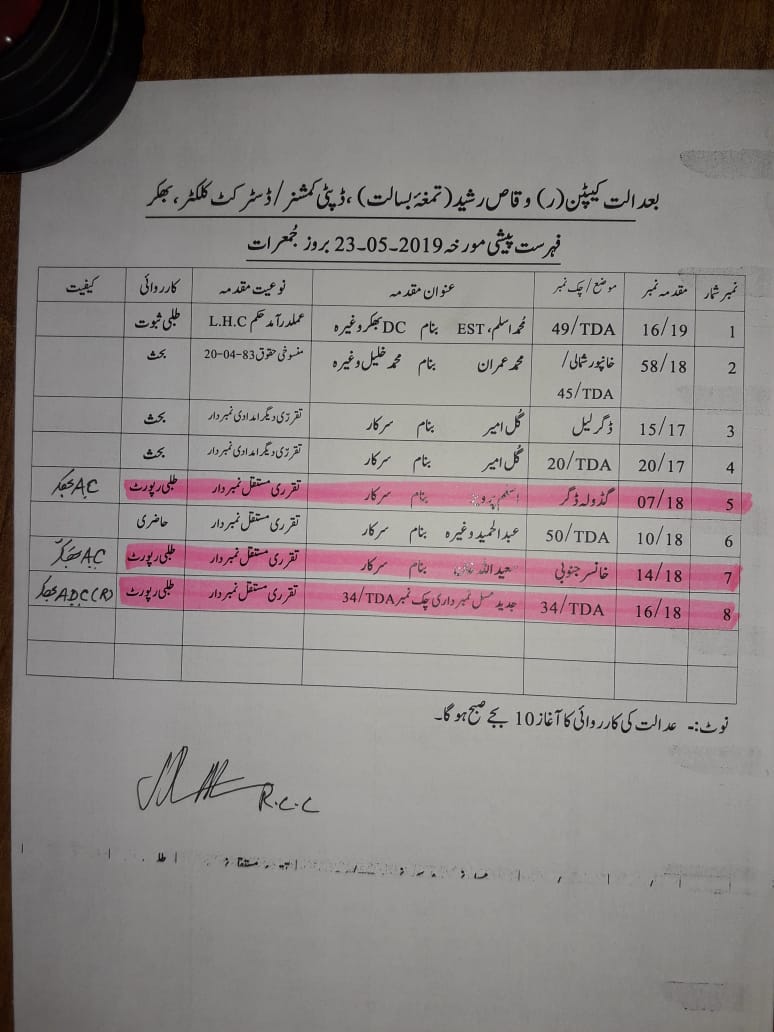 بعدالت کیپٹن (ر) وقاص رشید (تمغۂ بسالت)، ڈپٹی کمشنر / ڈسٹرکٹ کلکٹر، بھکر
فہرست پیشی مورخہ 23-05-2019 بروز جُمعرات
نمبر شمار مقدمہ نمبر موضع / چک نمبر عنوان مقدمہ نوعیت مقدمہ کارروائی کیفیت
1 16/19 49/TDA محمد اسلم، EST بنام DC بھکر وغیرہ عملدرآمد حکم L.H.C طلبی ثبوت
2 58/18 خانپور شمالی / محمد عمران بنام محمد خلیل وغیرہ منسوخی حقوق 20-04-83 بحث
45/TDA
3 15/17 ڈگر لیل گُل امیر بنام سرکار تقرری دیگر امدادی نمبردار بحث
4 20/17 20/TDA گُل امیر بنام سرکار تقرری دیگر امدادی نمبردار بحث
5 07/18 گڈولہ ڈگر اسلم پرویز بنام سرکار تقرری مستقل نمبردار طلبی رپورٹ AC بھکر
6 10/18 50/TDA عبدالحمید وغیرہ بنام سرکار تقرری مستقل نمبردار حاضری
7 14/18 خانسر جنوبی سعید اللہ خان بنام سرکار تقرری مستقل نمبردار طلبی رپورٹ AC بھکر
8 16/18 34/TDA جدید مسل نمبرداری چک نمبر 34/TDA تقرری مستقل نمبردار طلبی رپورٹ ADC(R) بھکر
نوٹ:- عدالت کی کارروائی کا آغاز 10 بجے صبح ہو گا۔
R.C.C